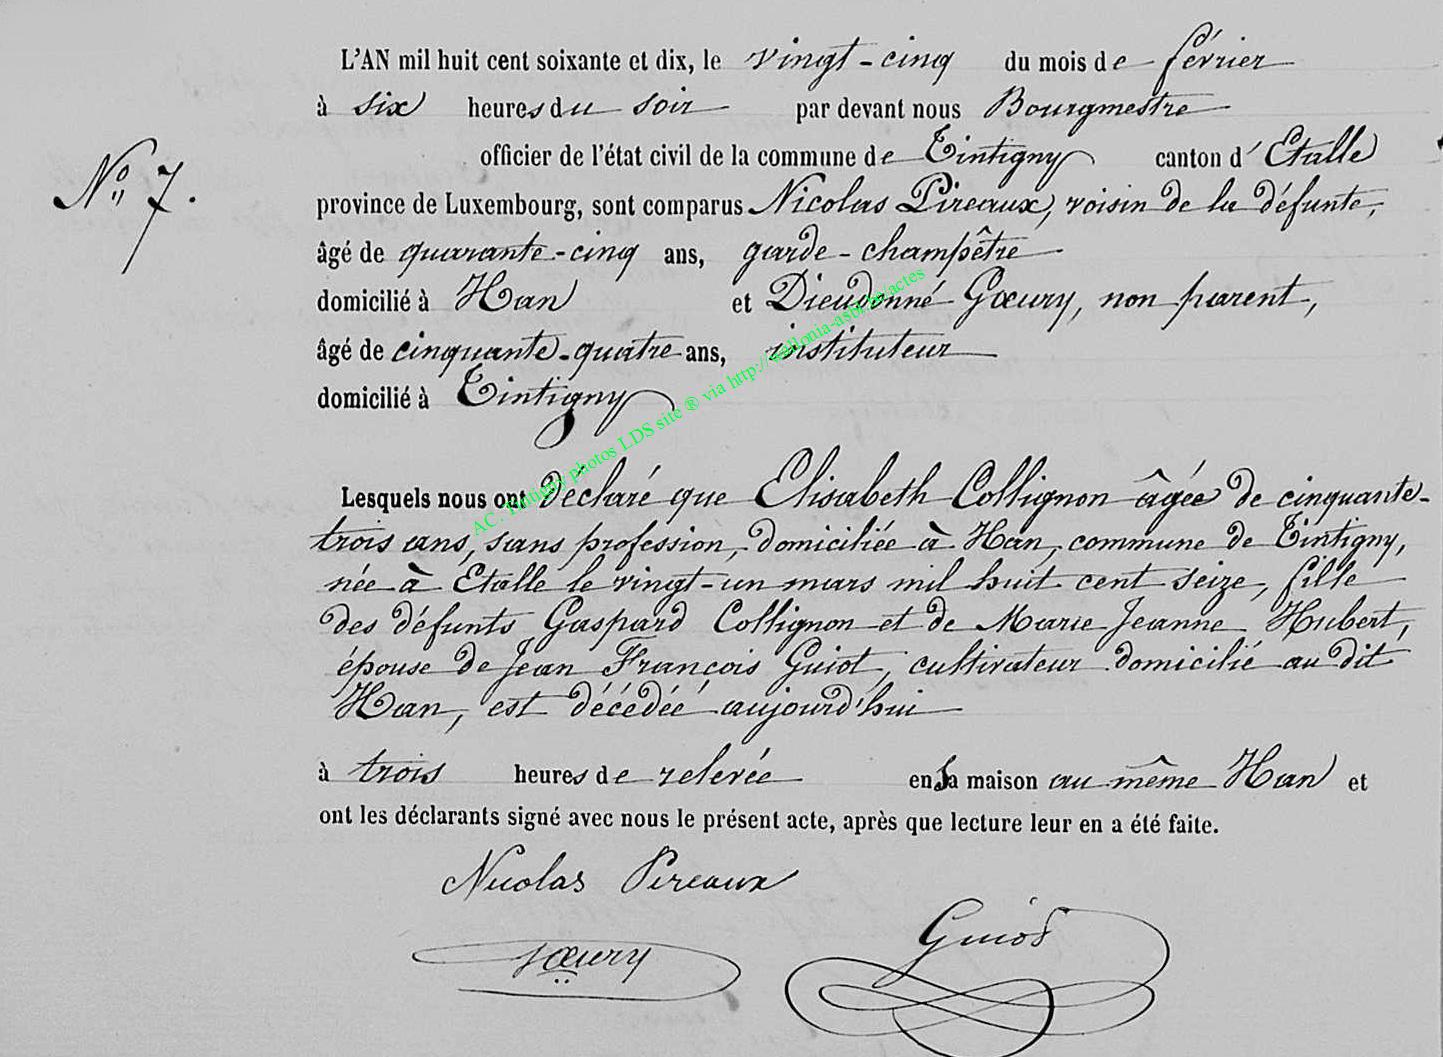 L'AN mil huit cent soixante et dix, le vingt-cinq du mois de février
à six heures du soir par devant nous Bourgmestre
officier de l'état civil de la commune de Tintigny canton d'Etalle
N° 7.
province de Luxembourg, sont comparus Nicolas Pireaux, voisin de la défunte,
âgé de quarante-cinq ans, garde-champêtre
domicilié à Han et Dieudonné Gœury, non parent,
âgé de cinquante-quatre ans, instituteur
domicilié à Tintigny
AC. Tintigny photos LDS site ® via http://wallonia-asbl.be/actes
Lesquels nous ont déclaré que Elisabeth Collignon âgée de cinquante-
trois ans, sans profession, domiciliée à Han, commune de Tintigny,
née à Etalle le vingt-un mars mil huit cent seize, fille
des défunts Gaspard Collignon et de Marie Jeanne Hubert,
épouse de Jean François Guiot, cultivateur domicilié au dit
Han, est décédée aujourd'hui
à trois heures de relevée en sa maison au même Han et
ont les déclarants signé avec nous le présent acte, après que lecture leur en a été faite.
Nicolas Pireaux
Guiot
Gœury